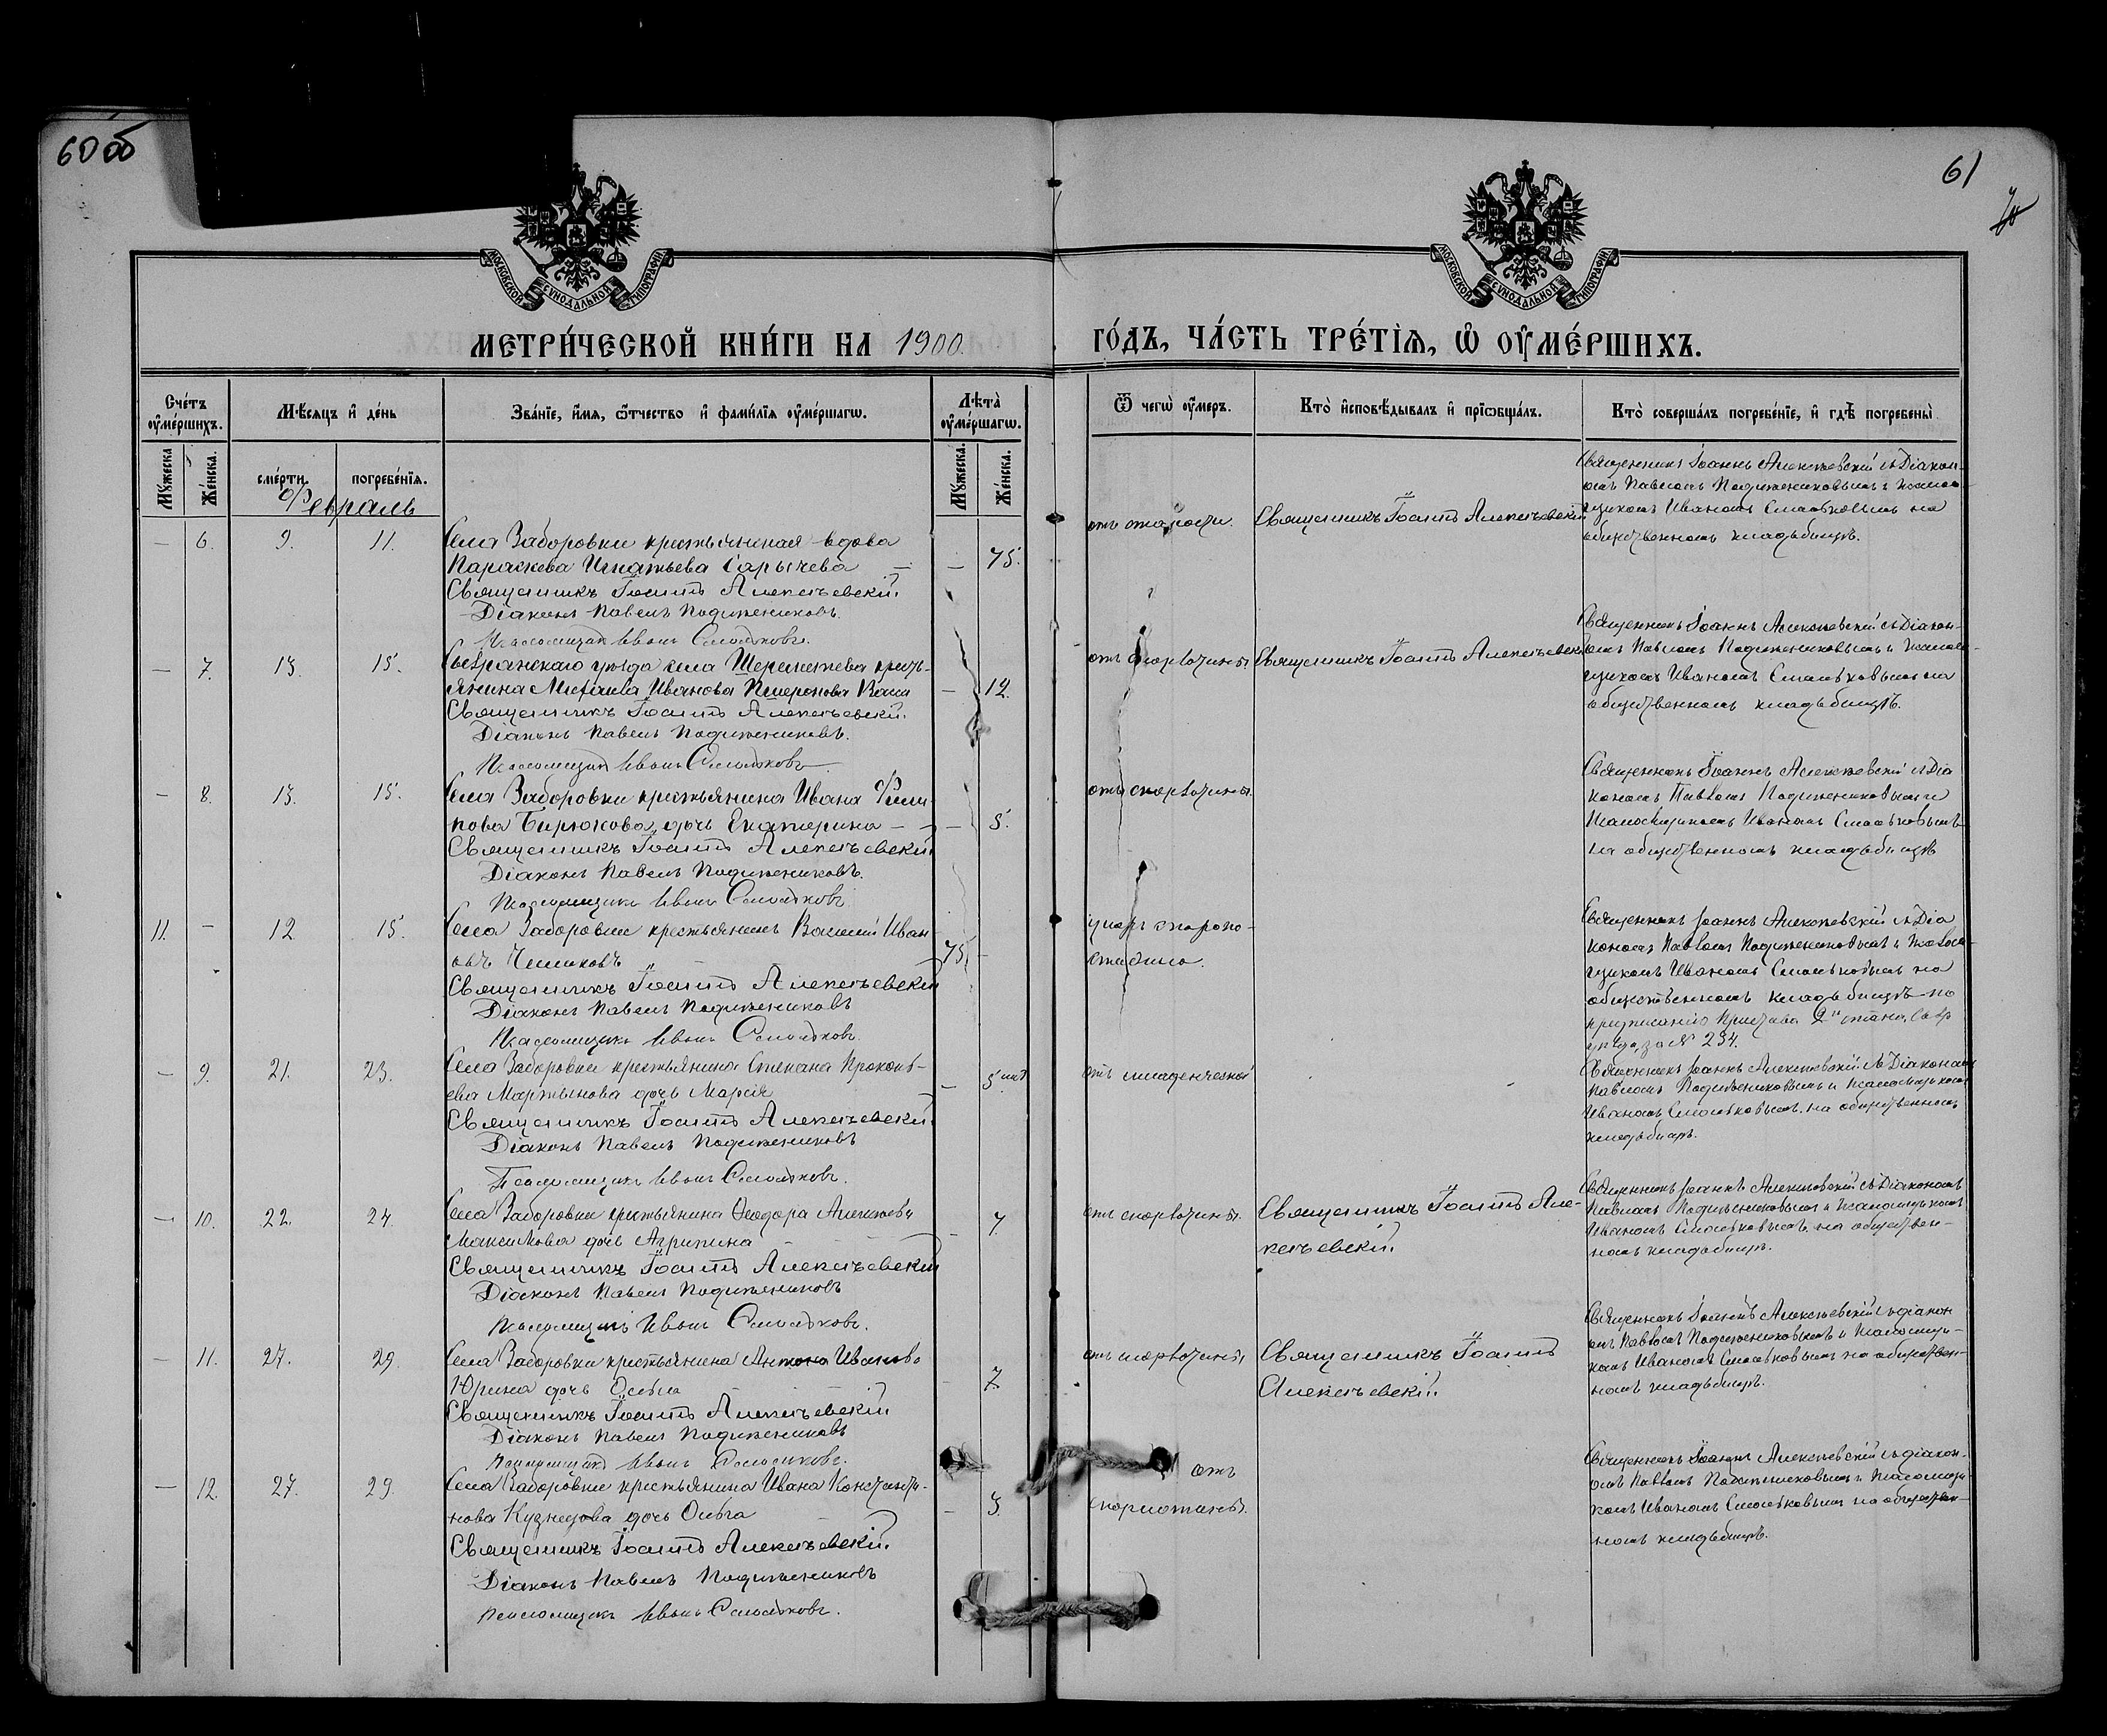 60 об
61
МОСКОВСКОЙ СѴНОДАЛЬНОЙ ТИПОГРАФІИ
МОСКОВСКОЙ СѴНОДАЛЬНОЙ ТИПОГРАФІИ
МЕТРИ́ЧЕСКОЙ КНИ́ГИ НА 1900.
ГО́ДЪ, ЧА́СТЬ ТРЕ́ТІѦ, Ѡ ОУМЕ́РШИХЪ.
Сче́тъ оуме́ршихъ.
Мѣ́сяцъ и де́нь
Зва́ніе, и́мя, ѻ́тчество и фами́лія оуме́ршагѡ.
Лѣта̀ оуме́ршагѡ.
Ѿ чегѡ̀ оу́меръ.
Кто̀ и́сповѣ́дывалъ и прїѡбща́лъ.
Кто̀ соверша́лъ погребе́ніе, и гдѣ̀ погребены̀
Му́жеска
Же́нска.
сме́рти.
погребе́нїя.
Му́жеска.
Же́нска.
Февраль
— 6. 9. 11. Села Заборовки крестьянская вдова
Параскева Игнатьева Сарычева — — 75.
Священникъ Іоаннъ Алексѣевскій.
Діаконъ Павелъ Подмѣниковъ.
Псаломщикъ Иванъ Смольковъ.
отъ старости.
Священникъ Іоаннъ Алексѣевскій
Священникъ Іоаннъ Алексѣевскій съ Діакон-
омъ Павломъ и
Иваномъ Смольковымъ на
общественномъ кладбищѣ.
— 7. 13. 15. Сызранскаго уѣзда села Шереметева кресть-
янина Михаила Иванова — 12.
Священникъ Іоаннъ Алексѣевскій.
Діаконъ Павелъ Подмѣниковъ.
Псаломщикъ Иванъ Смольковъ
отъ скорлатины
Священникъ Іоаннъ Алексѣевск
Священникъ Іоаннъ Алексѣевскій съ Діакон-
омъ Павломъ и
Иваномъ Смольковымъ на
общественномъ кладбищѣ.
— 8. 13. 15. Села Заборовки крестьянина Ивана Филип-
пова Бирюкова, дочь Екатерина — — 5.
Священникъ Іоаннъ Алексѣевскій
Діаконъ Павелъ Подмѣниковъ.
Псаломщикъ Иванъ Смольковъ
отъ скорлатины.
Священникъ Іоаннъ Алексѣевскій съ Діа
кономъ Павломъ и
Псаломщикомъ Иваномъ Смольковымъ
на общественномъ кладбищѣ
11. — 12 15. Села Заборовки крестьянинъ Василій Иван-
овъ 75. —
Священникъ Іоаннъ Алексѣевскій
Діаконъ Павелъ Подмѣниковъ
Псаломщикъ Иванъ Смольковъ.
умеръ скоропо-
стижно.
Священникъ Іоаннъ Алексѣевскій съ Діа
кономъ Павломъ и
Иваномъ Смольковымъ на
общественномъ кладбищѣ по
предписанію Пристава 2го стана, Сызр
уѣзда, за № 234.
— 9. 21. 23. Села Заборовки крестьянина Степана Прокопь-
ева Мартынова дочь Марія — 5
Священникъ Іоаннъ Алексѣевскій.
Діаконъ Павелъ Подмѣниковъ
Псаломщикъ Иванъ Смольковъ.
отъ младенческой
Священникъ Іоаннъ Алексѣевскій съ Діакономъ
Павломъ и
Иваномъ Смольковымъ, на общественномъ
кладбищѣ.
— 10. 22. 24. Села Заборовки крестьянина Ѳеодора Алексѣева
Максимова дочь Агрипина — 7.
Священникъ Іоаннъ Алексѣевскій
Діаконъ Павелъ Подмѣниковъ
Псаломщикъ Иванъ Смольковъ.
отъ скорлатины.
Священникъ Іоаннъ Але-
ксѣевскій.
Священникъ Іоаннъ Алексѣевскій съ Діакономъ
Павломъ и
Иваномъ Смольковымъ, на обществен-
номъ кладбищѣ.
— 11. 27. 29. Села Заборовки крестьянина Антона Иванова
Юрина дочь — 7.
Священникъ Іоаннъ Алексѣевскій
Діаконъ Павелъ Подмѣниковъ
Псаломщикъ Иванъ Смольковъ.
отъ скорлатины
Священникъ Іоаннъ
Алексѣевскій.
Священникъ Іоаннъ Алексѣевскій съ діакон
омъ Павломъ и
Иваномъ Смольковымъ на обществен-
номъ кладбищѣ.
— 12. 27. 29. Села Заборовки крестьянина Ивана Константи-
нова Кузнецова дочь Ольга — 3.
Священникъ Іоаннъ Алексѣевскій.
Діаконъ Павелъ Подмѣниковъ
Псаломщикъ Иванъ Смольковъ.
отъ
скорлатины.
Священникъ Іоаннъ Алексѣевскій съ діакон-
омъ Павломъ и
Иваномъ Смольковымъ на обществен-
номъ кладбищѣ.